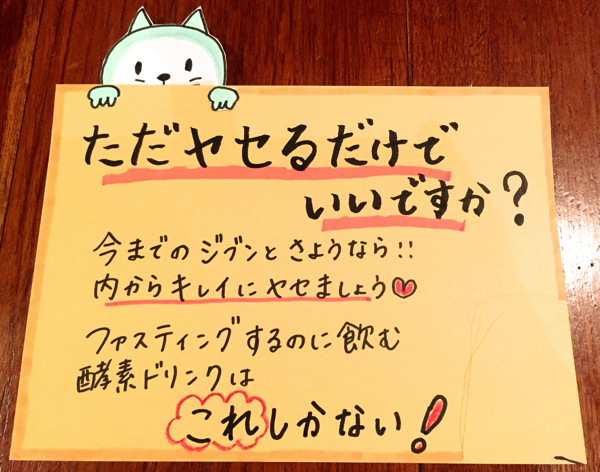 ただヤセるだけで
いいですか?
今までのジブンとさようなら!!
内からキレイにヤセましょう♥
ファスティングするのに飲む
酵素ドリンクは
これしかない!